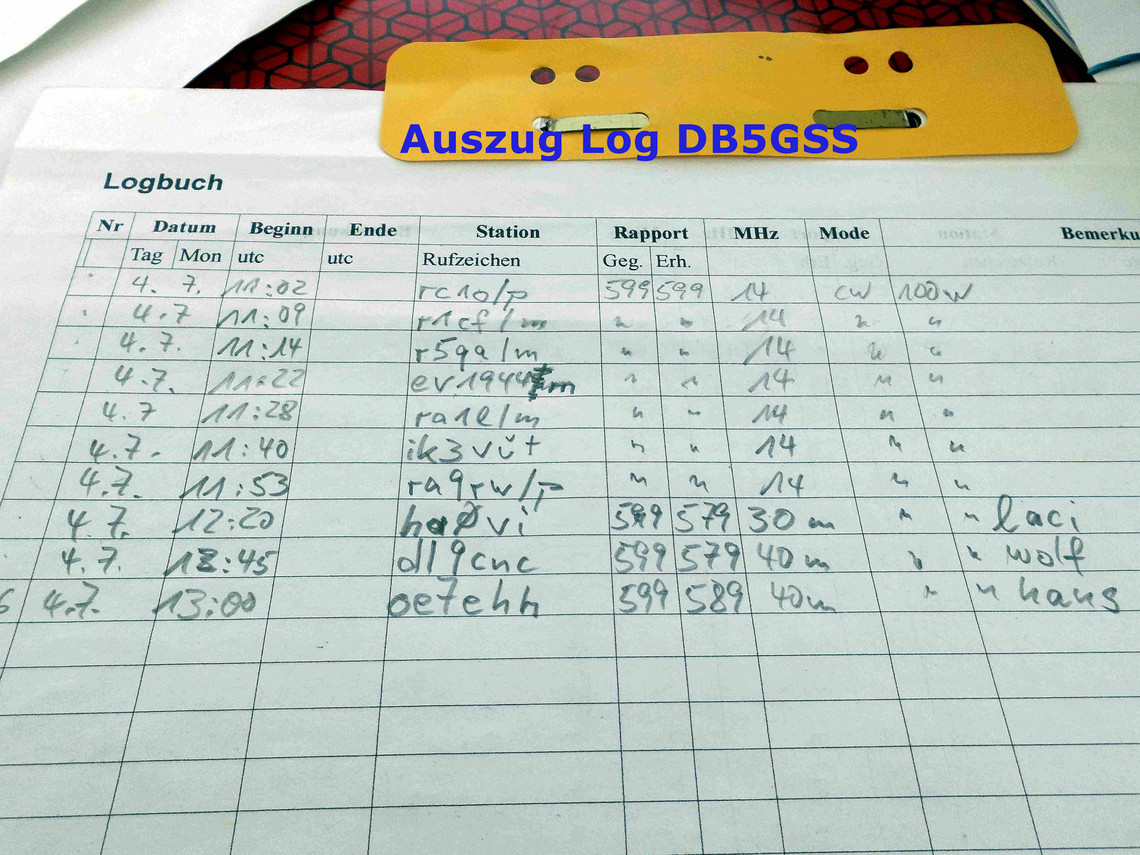 Auszug Log DB5GSS
Logbuch
Nr Datum Beginn Ende Station Rapport MHz Mode Bemerku
Tag Mon utc utc Rufzeichen Geg. Erh.
4. 7. 11:02 rc1o/p 599 599 14 cw 100W
4.7 11:09 r1cf/m " " 14 " "
4.7. 11:14 r5qa/m " " 14 " "
4.7. 11:22 ev1944 m " " 14 " "
4.7 11:28 ra1l/m " " 14 " "
4.7. 11:40 ik3vut " " 14 " "
4.7. 11:53 ra9rw/p " " 14 " "
4.7. 12:20 haØvi 599 579 30m " " laci
4.7. 12:45 dl9cnc 599 579 40m " " wolf
6 4.7. 13:00 oe7ehh 599 589 40m " " hans